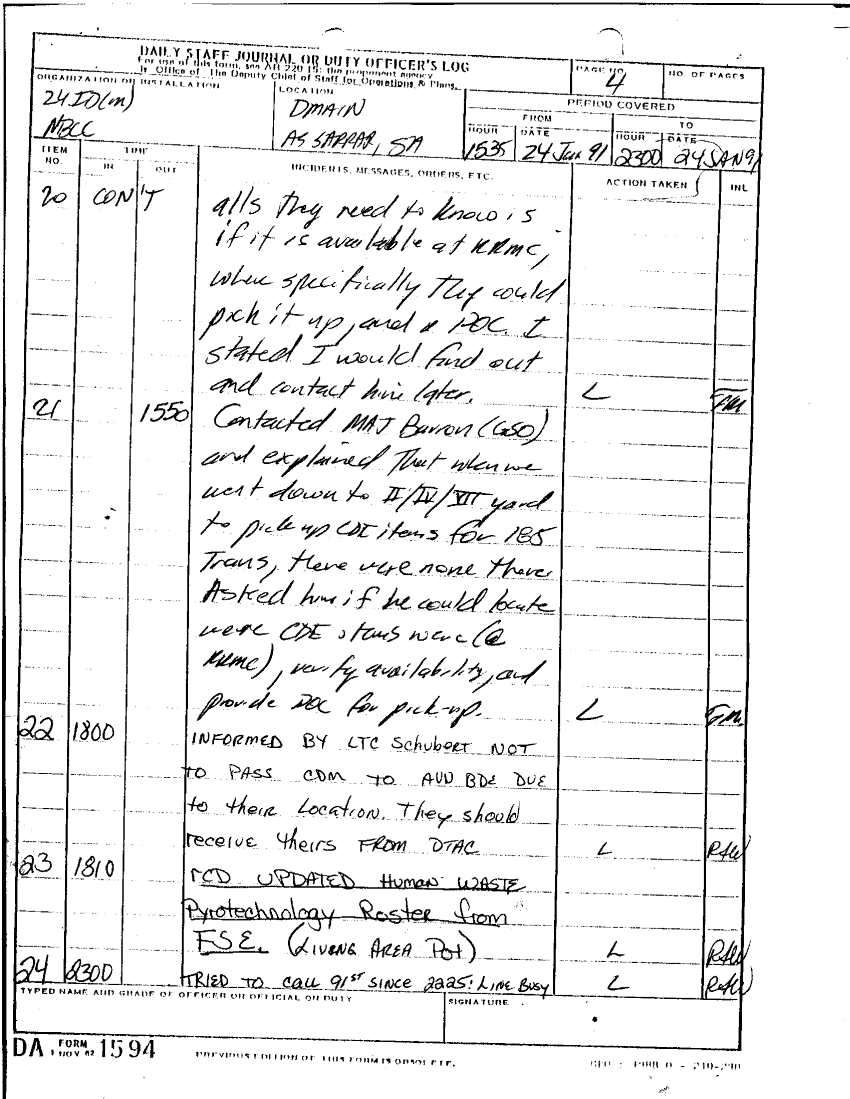 DAILY STAFF JOURNAL OR DUTY OFFICER'S LOG
For use of this form, see AR 220-15; the proponent agency
is Office of The Deputy Chief of Staff for Operations & Plans.
PAGE NO.
4
NO. OF PAGES
ORGANIZATION OR INSTALLATION
24 ID(m)
NBCC
LOCATION
DMAIN
AS SARRAR, SA
PERIOD COVERED
FROM
TO
HOUR
DATE
HOUR
DATE
1535
24 Jan 91
2300
24 JAN 91
ITEM NO.
TIME
IN
OUT
INCIDENTS, MESSAGES, ORDERS, ETC.
ACTION TAKEN
INL
20 CON'T alls they need to know is
if it is available at KKMC,
where specifically they could
pick it up, and a POC. I
stated I would find out
and contact him later. L
21 1550 Contacted MAJ Barron (GSO)
and explained that when we
went down to II/IV/VII yard
to pick up CDE items for 185
Trans, there were none there.
Asked him if he could locate
were CDE items were (@
KKMC), verify availability, and
provide POC for pick-up. L
22 1800 INFORMED BY LTC Schubert NOT
to PASS CDM to AVN BDE DUE
to their Location. They should
receive theirs FROM DTAC L
23 1810 RCD UPDATED Human WASTE
Pyrotechnology Roster from
FSE. (LIVING AREA POT) L
24 2300 TRIED TO CALL 91ST SINCE 2225: LINE BUSY L
TYPED NAME AND GRADE OF OFFICER OR OFFICIAL ON DUTY
SIGNATURE
DA FORM 1 NOV 62 1594
PREVIOUS EDITION OF THIS FORM IS OBSOLETE.